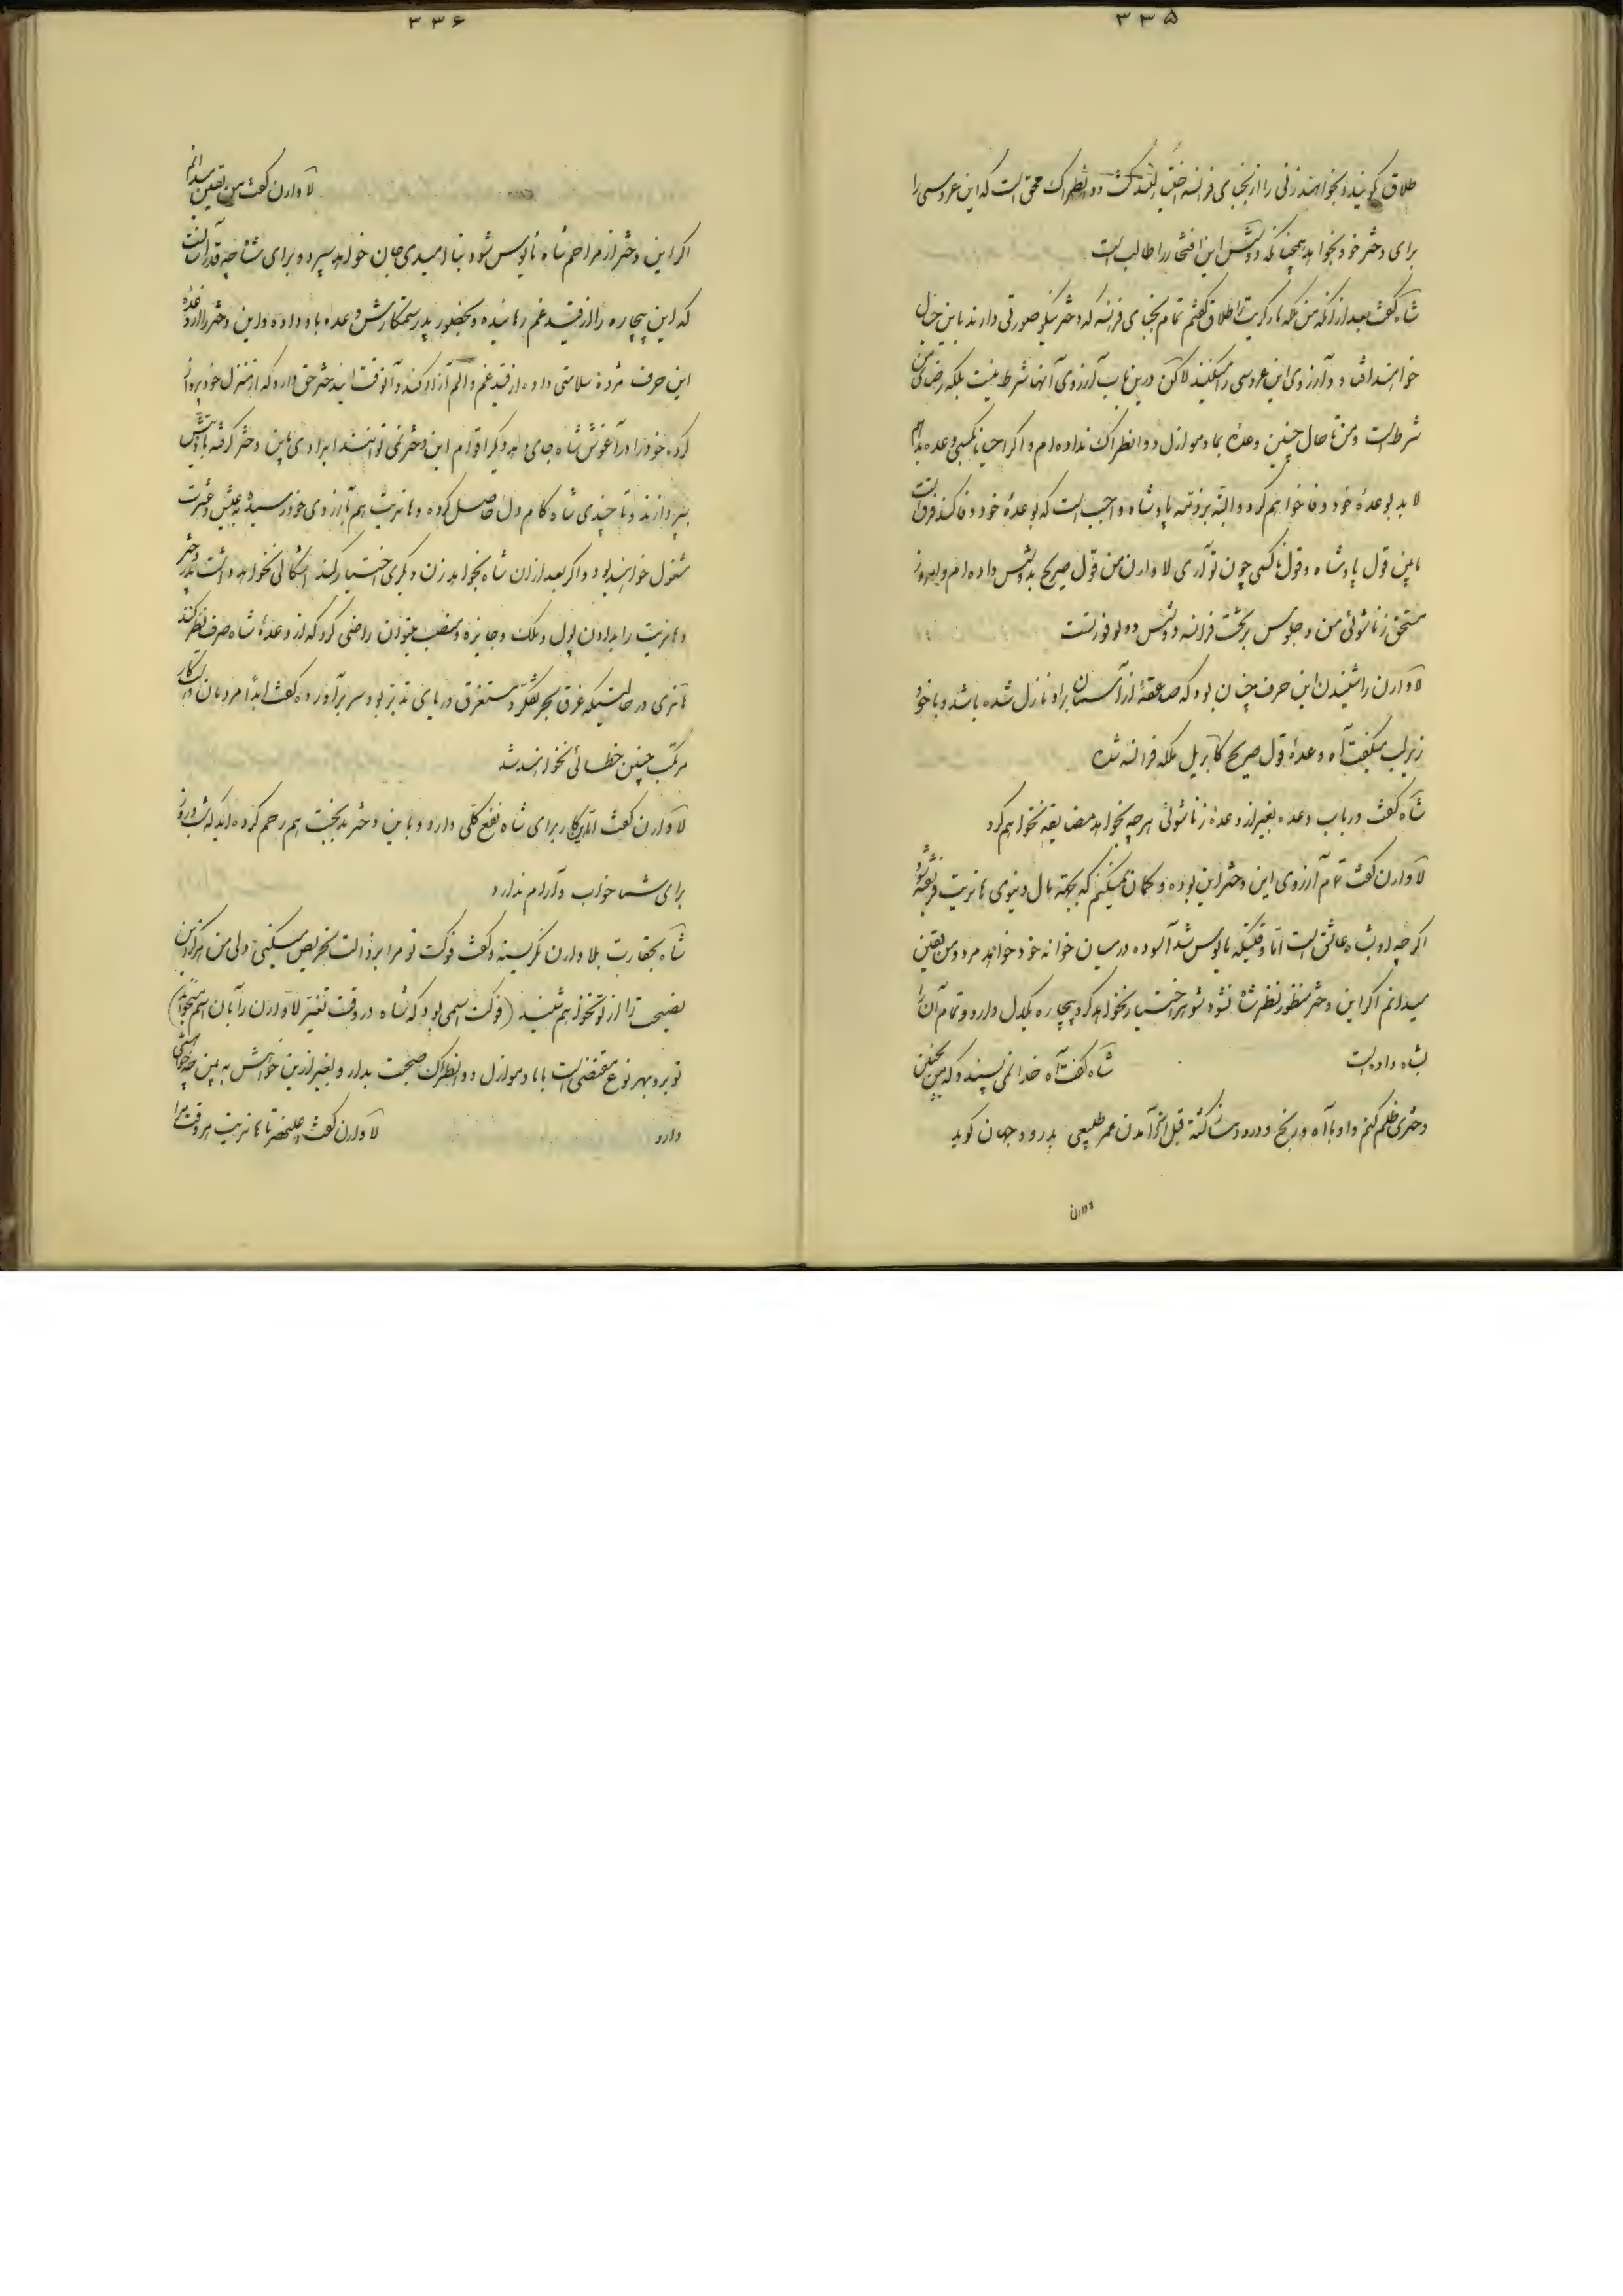 ۳۳۵
طلاق گویند و بخواهند زنی را از نجبای فرانسه اختیار کنند کنت دو انطراک محقق است که این عروسی را
برای دختر خود بخواهد همچنانکه دوشس این افتخار را طالب است
شاه گفت بعد از آنکه من ملکه مارگریت را طلاق گفتم تمام نجبای فرانسه که دختر نیکو صورتی دارند باین خیال
خواهند افتاد و آرزوی این عروسی را میکنند لاکن درین باب آرزوی آنها شرط نیست بلکه رضای من
شرط است و من تا حال چنین وعده بمادموازل دو انطراک نداده‌ام و اگر احیانا بکسی وعده بدهم
لابد بوعدهٔ خود وفا خواهم کرد و البته بر ذمه پادشاه واجب است که بوعدهٔ خود وفا کند فرق است
مابین قول پادشاه و قول کسی چون تو آری لاوارن من قول صریح بدوشس داده‌ام و امروز
مستحق زناشوئی من و جلوس بر تخت فرانسه دوشس دو بوفور است
لاوارن را شنیدن این حرف چنان بود که صاعقهٔ از آسمان بر او نازل شده باشد و با خود
زیر لب میگفت آه وعدهٔ قول صریح گابریل ملکه فرانسه شده
شاه گفت در باب وعده بغیر از وعدهٔ زناشوئی هر چه بخواهد مضایقه نخواهم کرد
لاوارن گفت تمام آرزوی این دختر این بوده و گمان نمیکنم که بجهته مال دنیوی هانریت فریفته شود
اگر چه او بشاه عاشق است اما وقتیکه مایوس شد آسوده در میان خانه خود خواهد مرد و من یقین
میدانم اگر این دختر منظور نظر شاه نشود شوهر اختیار نخواهد کرد بیچاره یکدل دارد و تمام آن را
بشاه داده است شاه گفت آه خدا نمی‌پسندد که من بچنین
دختری ظلم کنم و او با آه و رنج و درد دلشکسته قبل از آمدن عمر طبیعی بدرود جهان گوید
لاوارن
۳۳۶
لاوارن گفت من یقین میدانم
اگر این دختر از مراحم شاه مأیوس شود بناامیدی جان خواهد سپرد و برای شاه چه قدر آسانست
که این بیچاره را از قید غم رهانیده و بحضور پدر ستمکارش وعده باو داده و این دختر را از وعده
این حرف مژدهٔ سلامتی داده از قید غم و الم آزاد کند و آنوقت اینه دختر حق دارد که از منزل خود پرواز
کرده خود را در آغوش شاه جای دهد و دیگر اقوام این دختر نمی‌توانند ایرادی باین دختر گرفته باذیتش
بپردازند و تا چندی شاه کام دل حاصل کرده و هانریت هم بآرزوی خود رسیده به عیش و عشرت
مشغول خواهند بود و اگر بعد از آن شاه بخواهد زن دیگری اختیار کند اشکالی نخواهد داشت پدر دختر
و هانریت را بدادن پول و ملک و جایزه و منصب میتوان راضی کرد که از وعدهٔ شاه صرف نظر کنند
هانری در حالتیکه غرق بحر تفکر و مستغرق دریای تدبر بود سر برآورده گفت ابداً مردمان درستکار
مرتکب چنین خطائی نخواهند شد
لاوارن گفت اما این کار برای شاه نفع کلی دارد و باین دختر بدبخت هم رحم کرده‌اید که شب و روز
برای شما خواب و آرام ندارد
شاه بحقارت بلاوارن نگریسته و گفت فوکت تو مرا برذالت تحریص میکنی ولی من هرگز این
نصیحت را از تو نخواهم شنید (فوکت اسمی بود که شاه در وقت تغیر لاوارن را بآن اسم میخواند)
تو برو بهر نوع مقتضی است با مادموازل دو انطراک صحبت بدار و بغیر ازین خواهش به بین چه خواهشی
دارد لاوارن گفت اعلیحضرتا هانریت هر وقت مرا